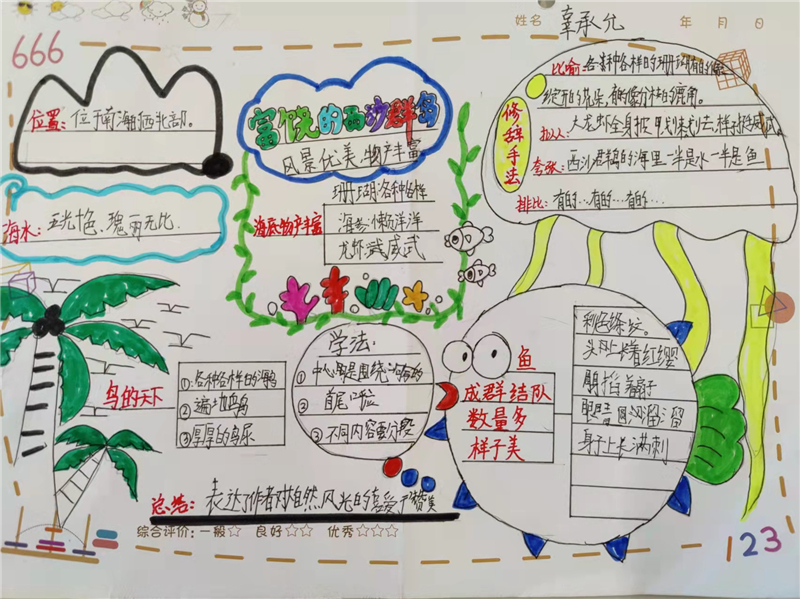 姓名 辜承允 年 月 日
666
位置：位于南海西北部。
海水：五光十色、瑰丽无比.
富饶的西沙群岛
风景优美 物产丰富
海底物产丰富
珊瑚各种各样
海参懒洋洋
龙虾威武
修辞手法
比喻：各种各样的珊瑚有的像
绽开的花朵，有的像分枝的鹿角。
拟人：大龙虾全身披甲划过来划过去样子挺威武
夸张：西沙群岛的海里一半是水一半是鱼
排比：有的…有的…有的…
鸟的天下
①各种各样的海鸟
②遍地鸟蛋
③厚厚的鸟尿
学法：
① 中心句是围绕
②
③ 不同内容要分段
鱼
成群结队
数量多
样子美
头上长着红缨
眼睛圆溜溜
身上长满刺
总结：表达了作者对自然风光的喜爱 赞美
综合评价：一般☆ 良好☆☆ 优秀☆☆☆
123